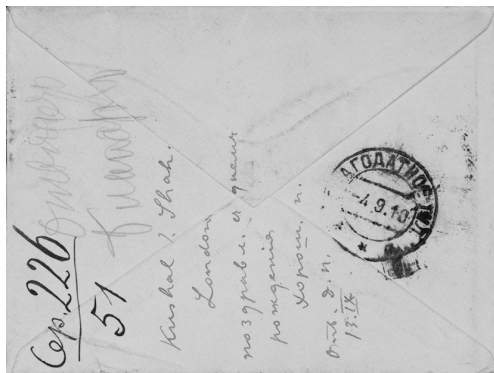 Сер. 226
51
Благодар
Kushal ? Shah.
London
поздравл. с днемъ
рожденiя
Хорош. п.
Отв. д. п.
13.IX.
АГОДАТНОЕ
-4.9.10